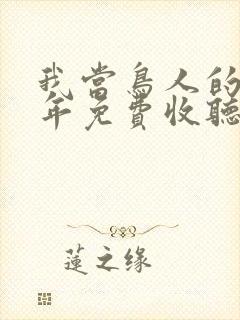 我當鳥人的
年免費收聽
蓮之缘